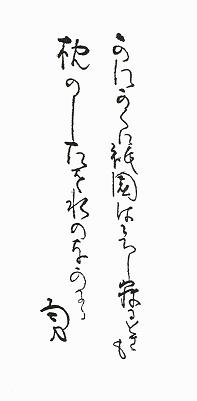 かにかくに祇園はこひし寐るときも
枕のしたを水のながるる
勇